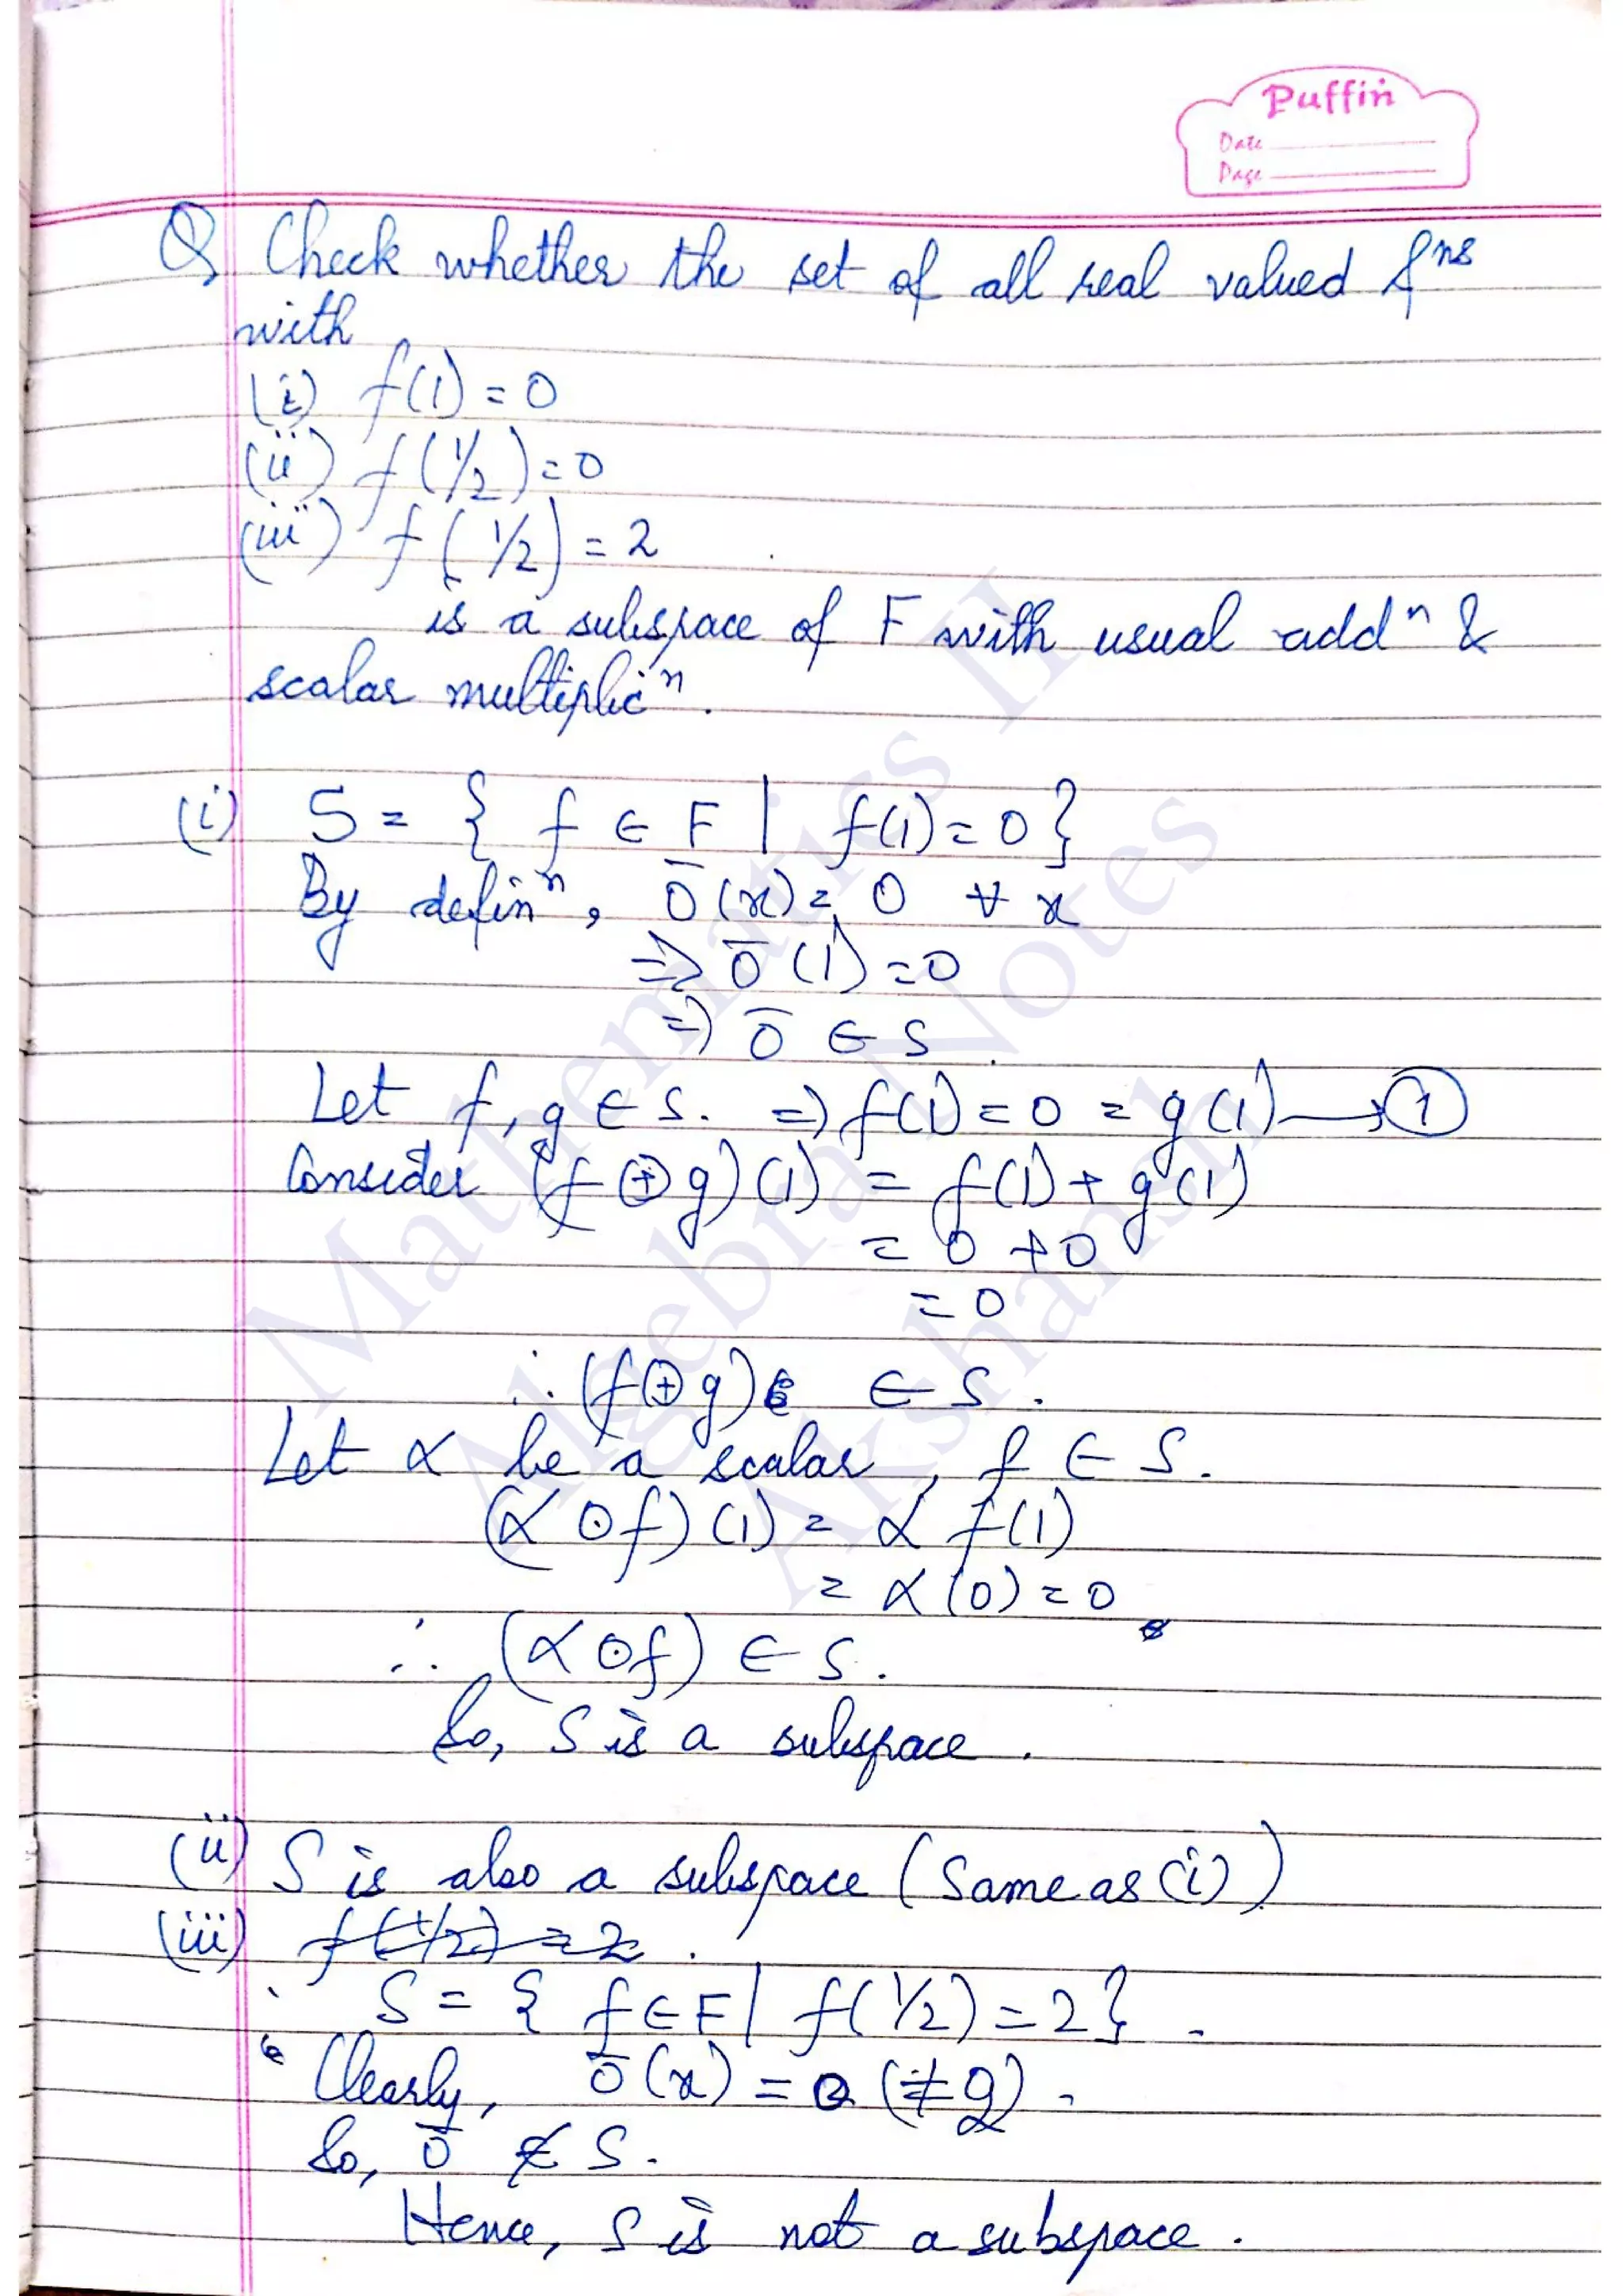 Puffin
Date
Page
Q Check whether the set of all real valued fⁿˢ
with
(i) f(1) = 0
(ii) f(1/2) = 0
(iii) f(1/2) = 2
is a subspace of F with usual addⁿ &
scalar multiplicⁿ.
(i) S = { f ∈ F | f(1) = 0 }
By definⁿ, 0̄(x) = 0 ∀ x
=> 0̄(1) = 0
=> 0̄ ∈ S
Let f, g ∈ S. => f(1) = 0 = g(1) → ①
Consider (f ⊕ g)(1) = f(1) + g(1)
= 0 + 0
= 0
∴ (f ⊕ g) ∈ S.
Let α be a scalar, f ∈ S.
(α ⊙ f)(1) = α f(1)
= α(0) = 0
∴ (α ⊙ f) ∈ S.
So, S is a subspace.
(ii) S is also a subspace (Same as (i))
(iii) f(1/2) = 2.
S = { f ∈ F | f(1/2) = 2 }.
Clearly, 0̄(x) = 0 (≠ 2).
So, 0̄ ∉ S.
Hence, S is not a subspace.
Mathematics II
Algebra Notes
Akshansh